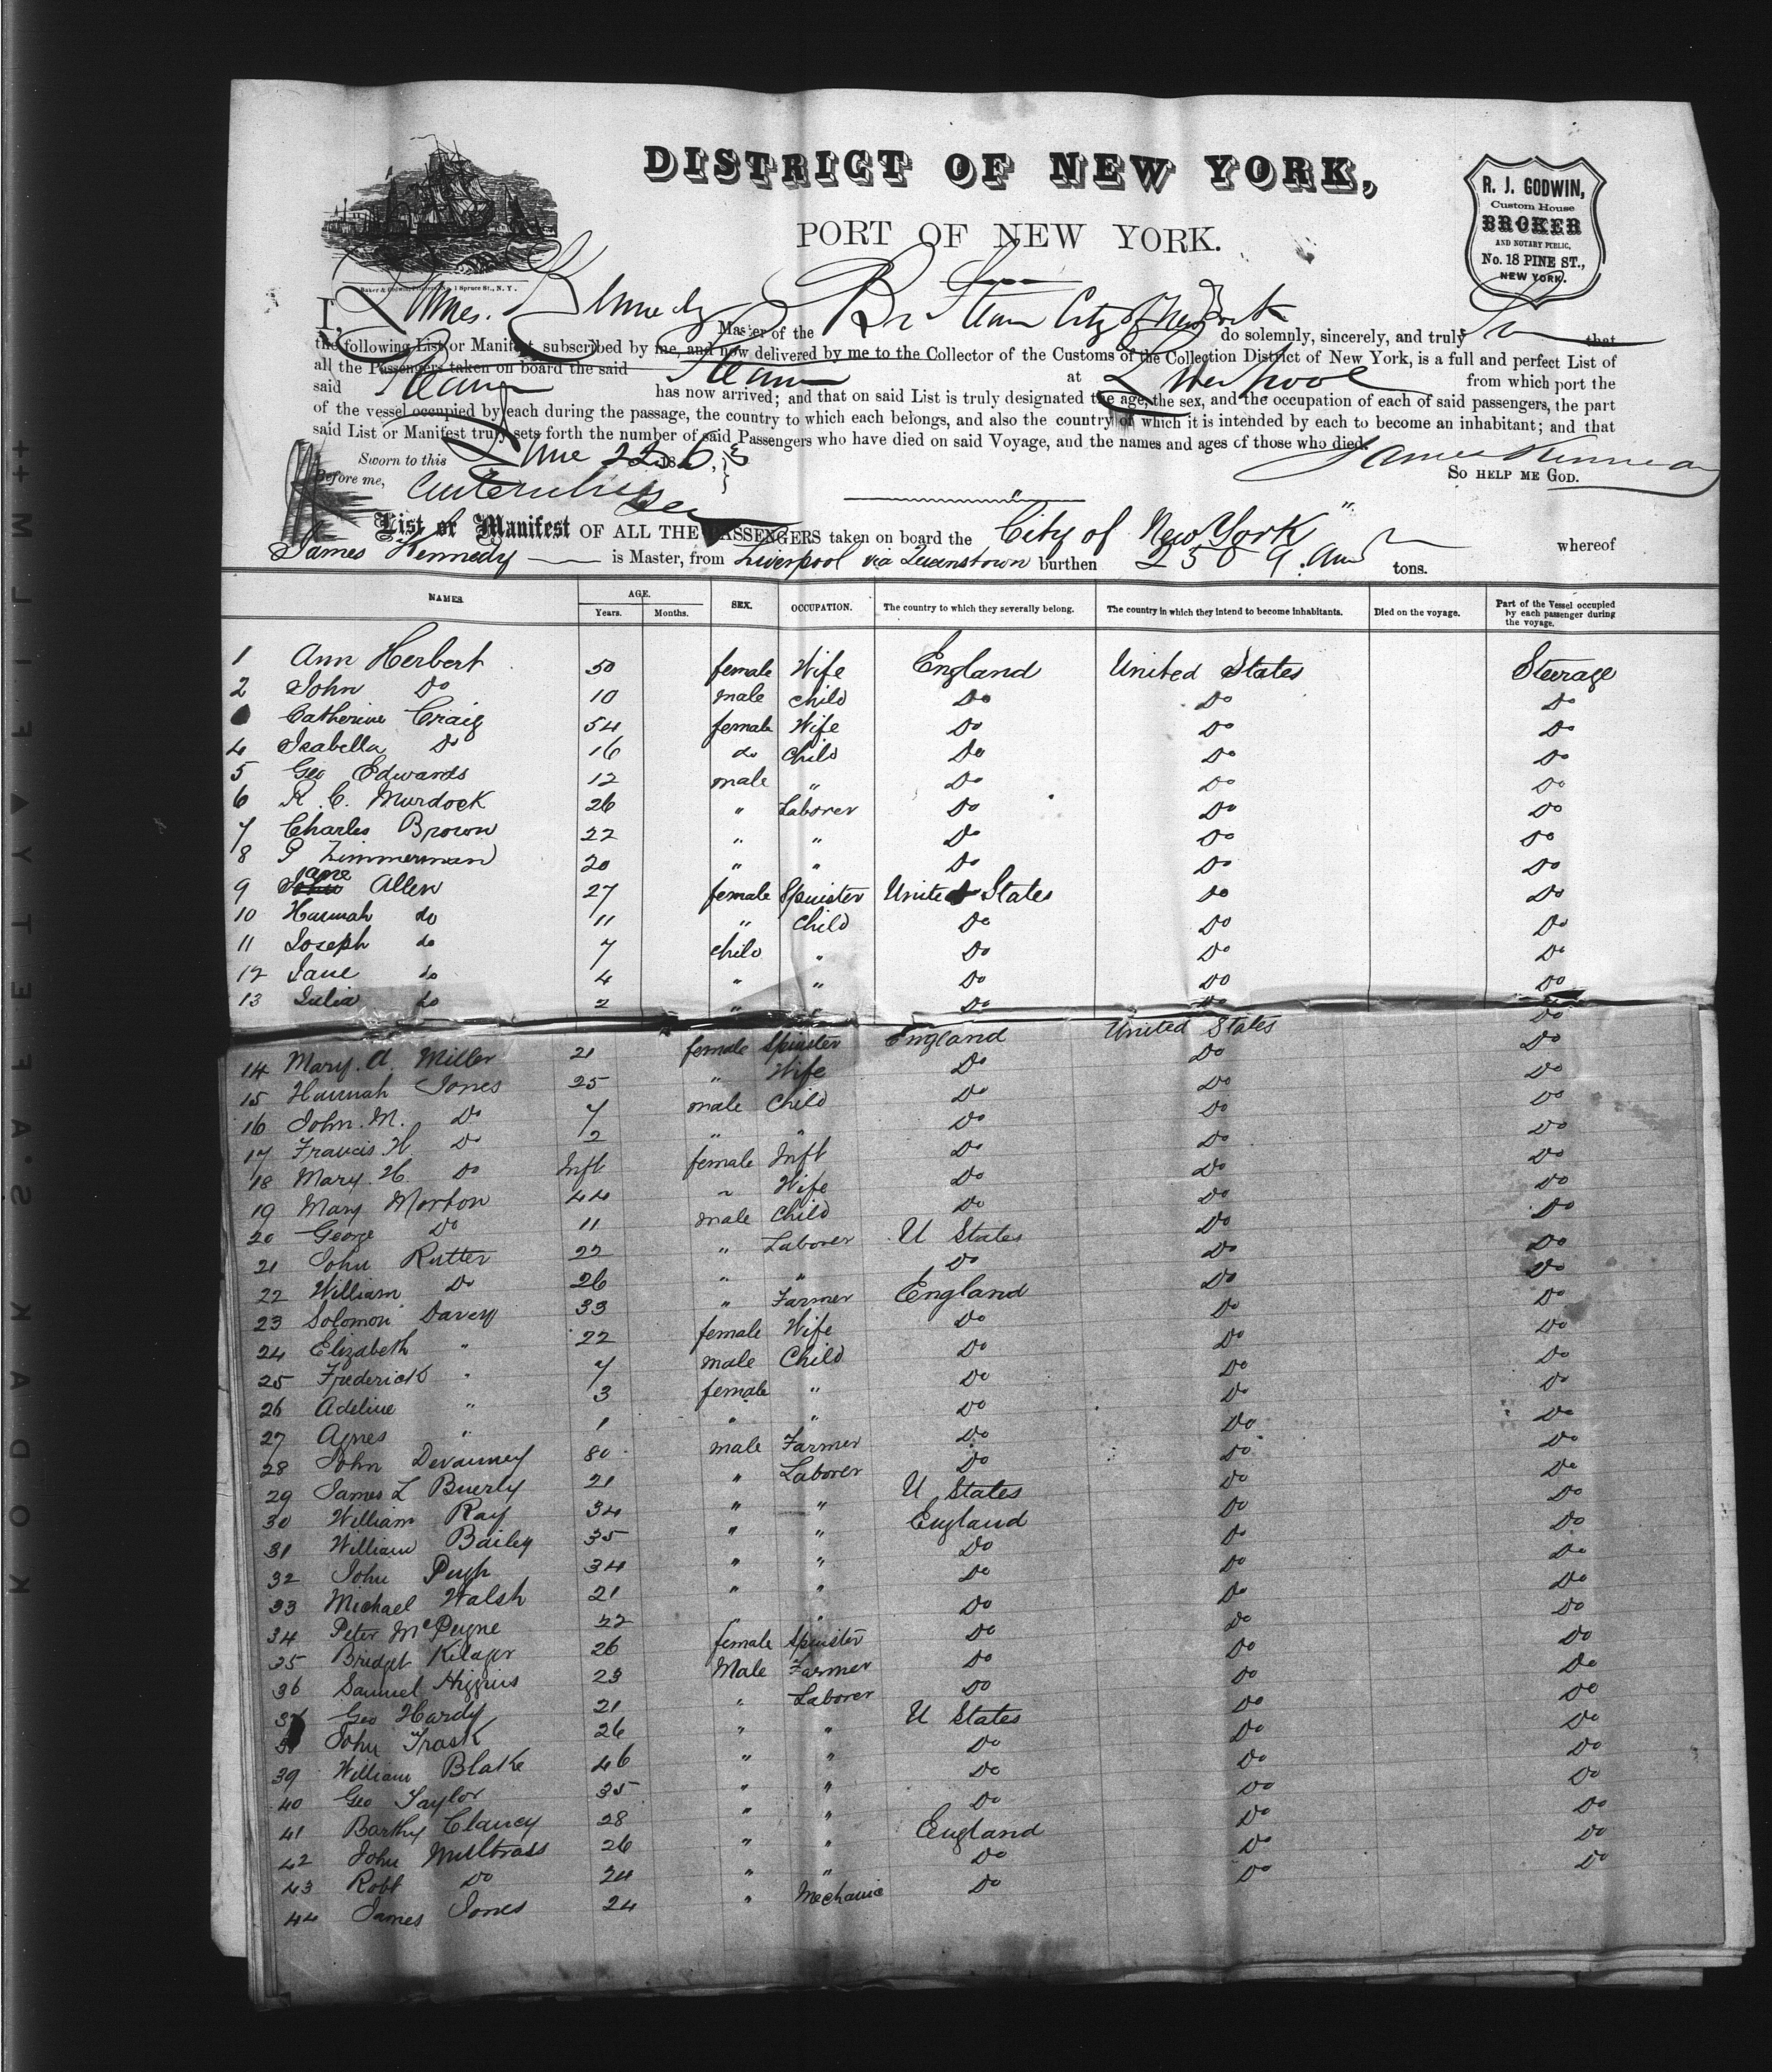 DISTRICT OF NEW YORK,
PORT OF NEW YORK.
R. J. GODWIN,
Custom House
BROKER
AND NOTARY PUBLIC,
No. 18 PINE ST.,
NEW YORK.
Baker & Godwin, Printers, No. 1 Spruce St., N. Y.
I, James Kennedy Master of the Br Steam City of New York do solemnly, sincerely, and truly that
the following List or Manifest, subscribed by me, and now delivered by me to the Collector of the Customs of the Collection District of New York, is a full and perfect List of
all the Passengers taken on board the said Steam at Liverpool from which port the
said Steam has now arrived; and that on said List is truly designated the age, the sex, and the occupation of each of said passengers, the part
of the vessel occupied by each during the passage, the country to which each belongs, and also the country of which it is intended by each to become an inhabitant; and that
said List or Manifest truly sets forth the number of said Passengers who have died on said Voyage, and the names and ages of those who died.
Sworn to this June 22 186
James Kennedy
SO HELP ME GOD.
Before me,
List or Manifest OF ALL THE PASSENGERS taken on board the "City of New York" whereof
James Kennedy is Master, from Liverpool via Queenstown burthen tons.
NAMES. AGE. SEX. OCCUPATION. The country to which they severally belong. The country in which they intend to become inhabitants. Died on the voyage. Part of the Vessel occupied by each passenger during the voyage.
Years. Months.
1 Ann Herbert 50 female Wife England United States Steerage
2 John Do 10 male child Do Do Do
Catherine Craig 54 female Wife Do Do Do
4 Isabella Do 16 do Child Do Do Do
5 Geo Edwards 12 male " Do Do Do
6 R. C. Murdock 26 " Laborer Do Do Do
7 Charles Brown 22 " " Do Do Do
8 P Zimmerman 20 " " Do Do Do
9 Jane Allen 27 female Spinster United States Do Do
10 Hannah do 11 " Child Do Do Do
11 Joseph do 7 child " Do Do Do
12 Jane do 4 " " Do Do Do
13 Julia do 2 " " Do Do Do
14 Mary A. Miller 21 female Spinster England United States Do
15 Hannah Jones 25 " Wife Do Do Do
16 John M. Do 7 male Child Do Do Do
17 Francis H. Do 2 " " Do Do Do
18 Mary H. Do Inft female Inft Do Do Do
19 Mary Morton 44 " Wife Do Do Do
20 George Do 11 male Child Do Do Do
21 John Rutter 22 " Laborer U States Do Do
22 William Do 26 " " Do Do Do
23 Solomon Davey 33 " Farmer England Do Do
24 Elizabeth " 22 female Wife Do Do Do
25 Frederick " 7 male Child Do Do Do
26 Adeline " 3 female " Do Do Do
27 Agnes " 1 " " Do Do Do
28 John Devanney 80 male Farmer Do Do Do
29 James L 21 " Laborer Do Do Do
30 William Ray 34 " " U States Do Do
31 William Bailey 35 " " England Do Do
32 John Pugh 34 " " Do Do Do
33 Michael Walsh 21 " " Do Do Do
34 Peter 22 " " Do Do Do
35 Bridget 26 female Spinster Do Do Do
36 Samuel Higgins 23 Male Farmer Do Do Do
37 Geo Hardy 21 " Laborer Do Do Do
John Trask 26 " " U States Do Do
39 William Blake 46 " " Do Do Do
40 Geo Taylor 35 " " Do Do Do
41 Barthy Clancy 28 " " Do Do Do
42 John 26 " " England Do Do
43 Robt Do 24 " " Do Do Do
44 James Jones 24 " Mechanic Do Do Do
KODAK·S.AFETY▲FILM++